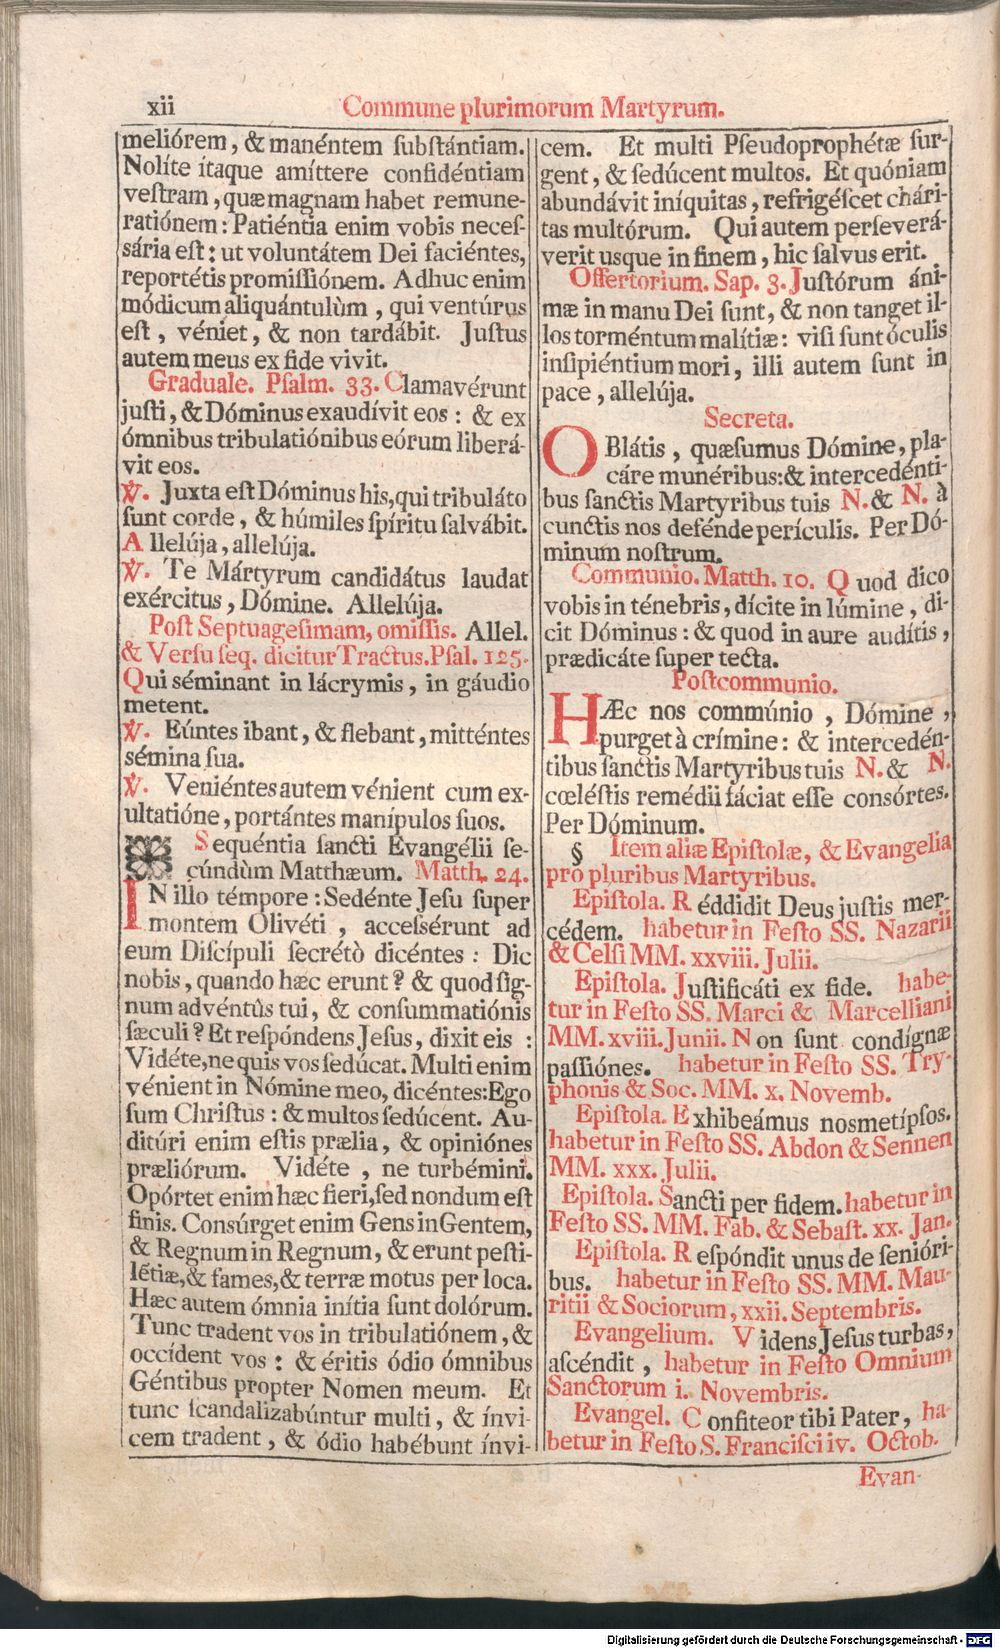 xii
Commune plurimorum Martyrum.
meliórem, & manéntem ſubſtántiam.
Nolíte ítaque amíttere confidéntiam
veſtram, quæ magnam habet remune-
ratiónem: Patiéntia enim vobis neceſ-
sária eſt: ut voluntátem Dei faciéntes,
reportétis promiſſiónem. Adhuc enim
módicum aliquántulùm, qui ventúrus
eſt, véniet, & non tardábit. Juſtus
autem meus ex fide vivit.
Graduale. Pſalm. 33. Clamavérunt
juſti, & Dóminus exaudívit eos: & ex
ómnibus tribulatiónibus eórum liberá-
vit eos.
℣. Juxta eſt Dóminus his, qui tribuláto
ſunt corde, & húmiles ſpíritu ſalvábit.
Allelúja, allelúja.
℣. Te Mártyrum candidátus laudat
exércitus, Dómine. Allelúja.
Poſt Septuageſimam, omiſſis. Allel.
& Verſu ſeq. dicitur Tractus. Pſal. 125.
Qui séminant in lácrymis, in gáudio
metent.
℣. Eúntes ibant, & flebant, mitténtes
sémina ſua.
℣. Veniéntes autem vénient cum ex-
ultatióne, portántes manípulos ſuos.
Sequéntia ſancti Evangélii ſe-
cúndùm Matthæum. Matth. 24.
IN illo témpore: Sedénte Jeſu ſuper
montem Olivéti, acceſsérunt ad
eum Diſcípuli ſecrétò dicéntes: Dic
nobis, quando hæc erunt? & quod ſig-
num advéntûs tui, & conſummatiónis
ſæculi? Et reſpóndens Jeſus, dixit eis:
Vidéte, ne quis vos ſedúcat. Multi enim
vénient in Nómine meo, dicéntes: Ego
ſum Chriſtus: & multos ſedúcent. Au-
ditúri enim eſtis prælia, & opiniónes
præliórum. Vidéte, ne turbémini.
Opórtet enim hæc fieri, ſed nondum eſt
finis. Consúrget enim Gens in Gentem,
& Regnum in Regnum, & erunt peſti-
lētiæ, & fames, & terræ motus per loca.
Hæc autem ómnia inítia ſunt dolórum.
Tunc tradent vos in tribulatiónem, &
occídent vos: & éritis ódio ómnibus
Géntibus propter Nomen meum. Et
tunc ſcandalizabúntur multi, & ínvi-
cem tradent, & ódio habébunt ínvi-
cem. Et multi Pſeudoprophétæ ſur-
gent, & ſedúcent multos. Et quóniam
abundávit iníquitas, refrigéſcet chári-
tas multórum. Qui autem perſeverá-
verit usque in finem, hic ſalvus erit.
Offertorium. Sap. 3. Juſtórum áni-
mæ in manu Dei ſunt, & non tanget il-
los torméntum malítiæ: viſi ſunt óculis
inſipiéntium mori, illi autem ſunt in
pace, allelúja.
Secreta.
OBlátis, quæſumus Dómine, pla-
cáre munéribus: & intercedénti-
bus ſanctis Martyribus tuis N. & N. à
cunctis nos defénde perículis. Per Dó-
minum noſtrum.
Communio. Matth. 10. Quod dico
vobis in ténebris, dícite in lúmine, di-
cit Dóminus: & quod in aure audítis,
prædicáte ſuper tecta.
Poſtcommunio.
HÆc nos commúnio, Dómine,
purget à crímine: & intercedén-
tibus ſanctis Martyribus tuis N. & N.
cœléſtis remédii fáciat eſſe consórtes.
Per Dóminum.
§ Item aliæ Epiſtolæ, & Evangelia
pro pluribus Martyribus.
Epiſtola. Réddidit Deus juſtis mer-
cédem. habetur in Feſto SS. Nazarii
& Celſi MM. xxviii. Julii.
Epiſtola. Juſtificáti ex fide. habe-
tur in Feſto SS. Marci & Marcelliani
MM. xviii. Junii. Non ſunt condígnæ
paſſiónes. habetur in Feſto SS. Try-
phonis & Soc. MM. x. Novemb.
Epiſtola. Exhibeámus nosmetípſos.
habetur in Feſto SS. Abdon & Sennen
MM. xxx. Julii.
Epiſtola. Sancti per fidem. habetur in
Feſto SS. MM. Fab. & Sebaſt. xx. Jan.
Epiſtola. Reſpóndit unus de senióri-
bus. habetur in Feſto SS. MM. Mau-
ritii & Sociorum, xxii. Septembris.
Evangelium. Videns Jeſus turbas,
aſcéndit, habetur in Feſto Omnium
Sanctorum i. Novembris.
Evangel. Confiteor tibi Pater, ha-
betur in Feſto S. Franciſci iv. Octob.
Evan-
Digitalisierung gefördert durch die Deutsche Forschungsgemeinschaft - DFG